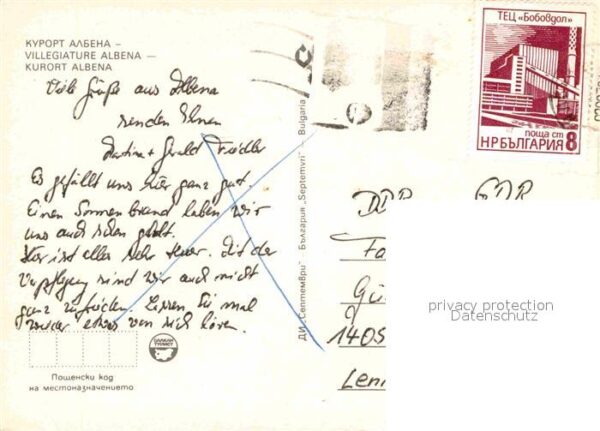 КУРОРТ АЛБЕНА –
VILLEGIATURE ALBENA –
KURORT ALBENA
Viele Grüße aus Albena
senden Ihnen
Martina + Gerald Friedler
Es gefällt uns hier ganz gut.
Einen Sonnenbrand haben wir
uns auch schon geholt.
Hier ist alles sehr teuer. Mit der
Verpflegung sind wir auch nicht
ganz zufrieden. Lassen Sie mal
wieder etwas von sich hören.
Пощенски код
на местоназначението
БАЛКАН
ТУРИСТ
ДИ „Септември“ България „Septemvri“ — Bulgaria
ТЕЦ „Бобовдол“
поща ст 8
НР БЪЛГАРИЯ
DDR GDR
Fa
Gü
1405
Len
privacy protection
Datenschutz